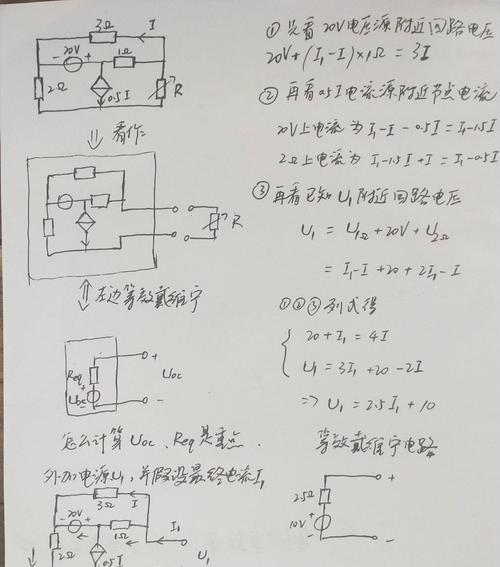 3Ω
I
- 20V +
1Ω
2Ω
0.5I
R
看作
R
左边等效戴维宁
Req
Uoc
Uoc
怎么计算Uoc、Req是重点.
外加电源U₁,并假设最终电流I₁
3Ω
I
- 20V +
1Ω
I₁
2Ω
0.5I
U₁
① 先看20V电压源附近回路电压
20V+(I₁-I)×1Ω=3I
② 再看0.5I电流源附近节点电流
20V上电流为I₁-I-0.5I=I₁-1.5I
2Ω上电流为I₁-1.5I+I=I₁-0.5I
③ 再看已知U₁附近回路电压
U₁=U₁Ω+20V+U₂Ω
=I₁-I+20+2I₁-I
①②③列式得
20+I₁=4I
U₁=3I₁+20-2I
=> U₁=2.5I₁+10
等效戴维宁电路
2.5Ω
10V
+
-